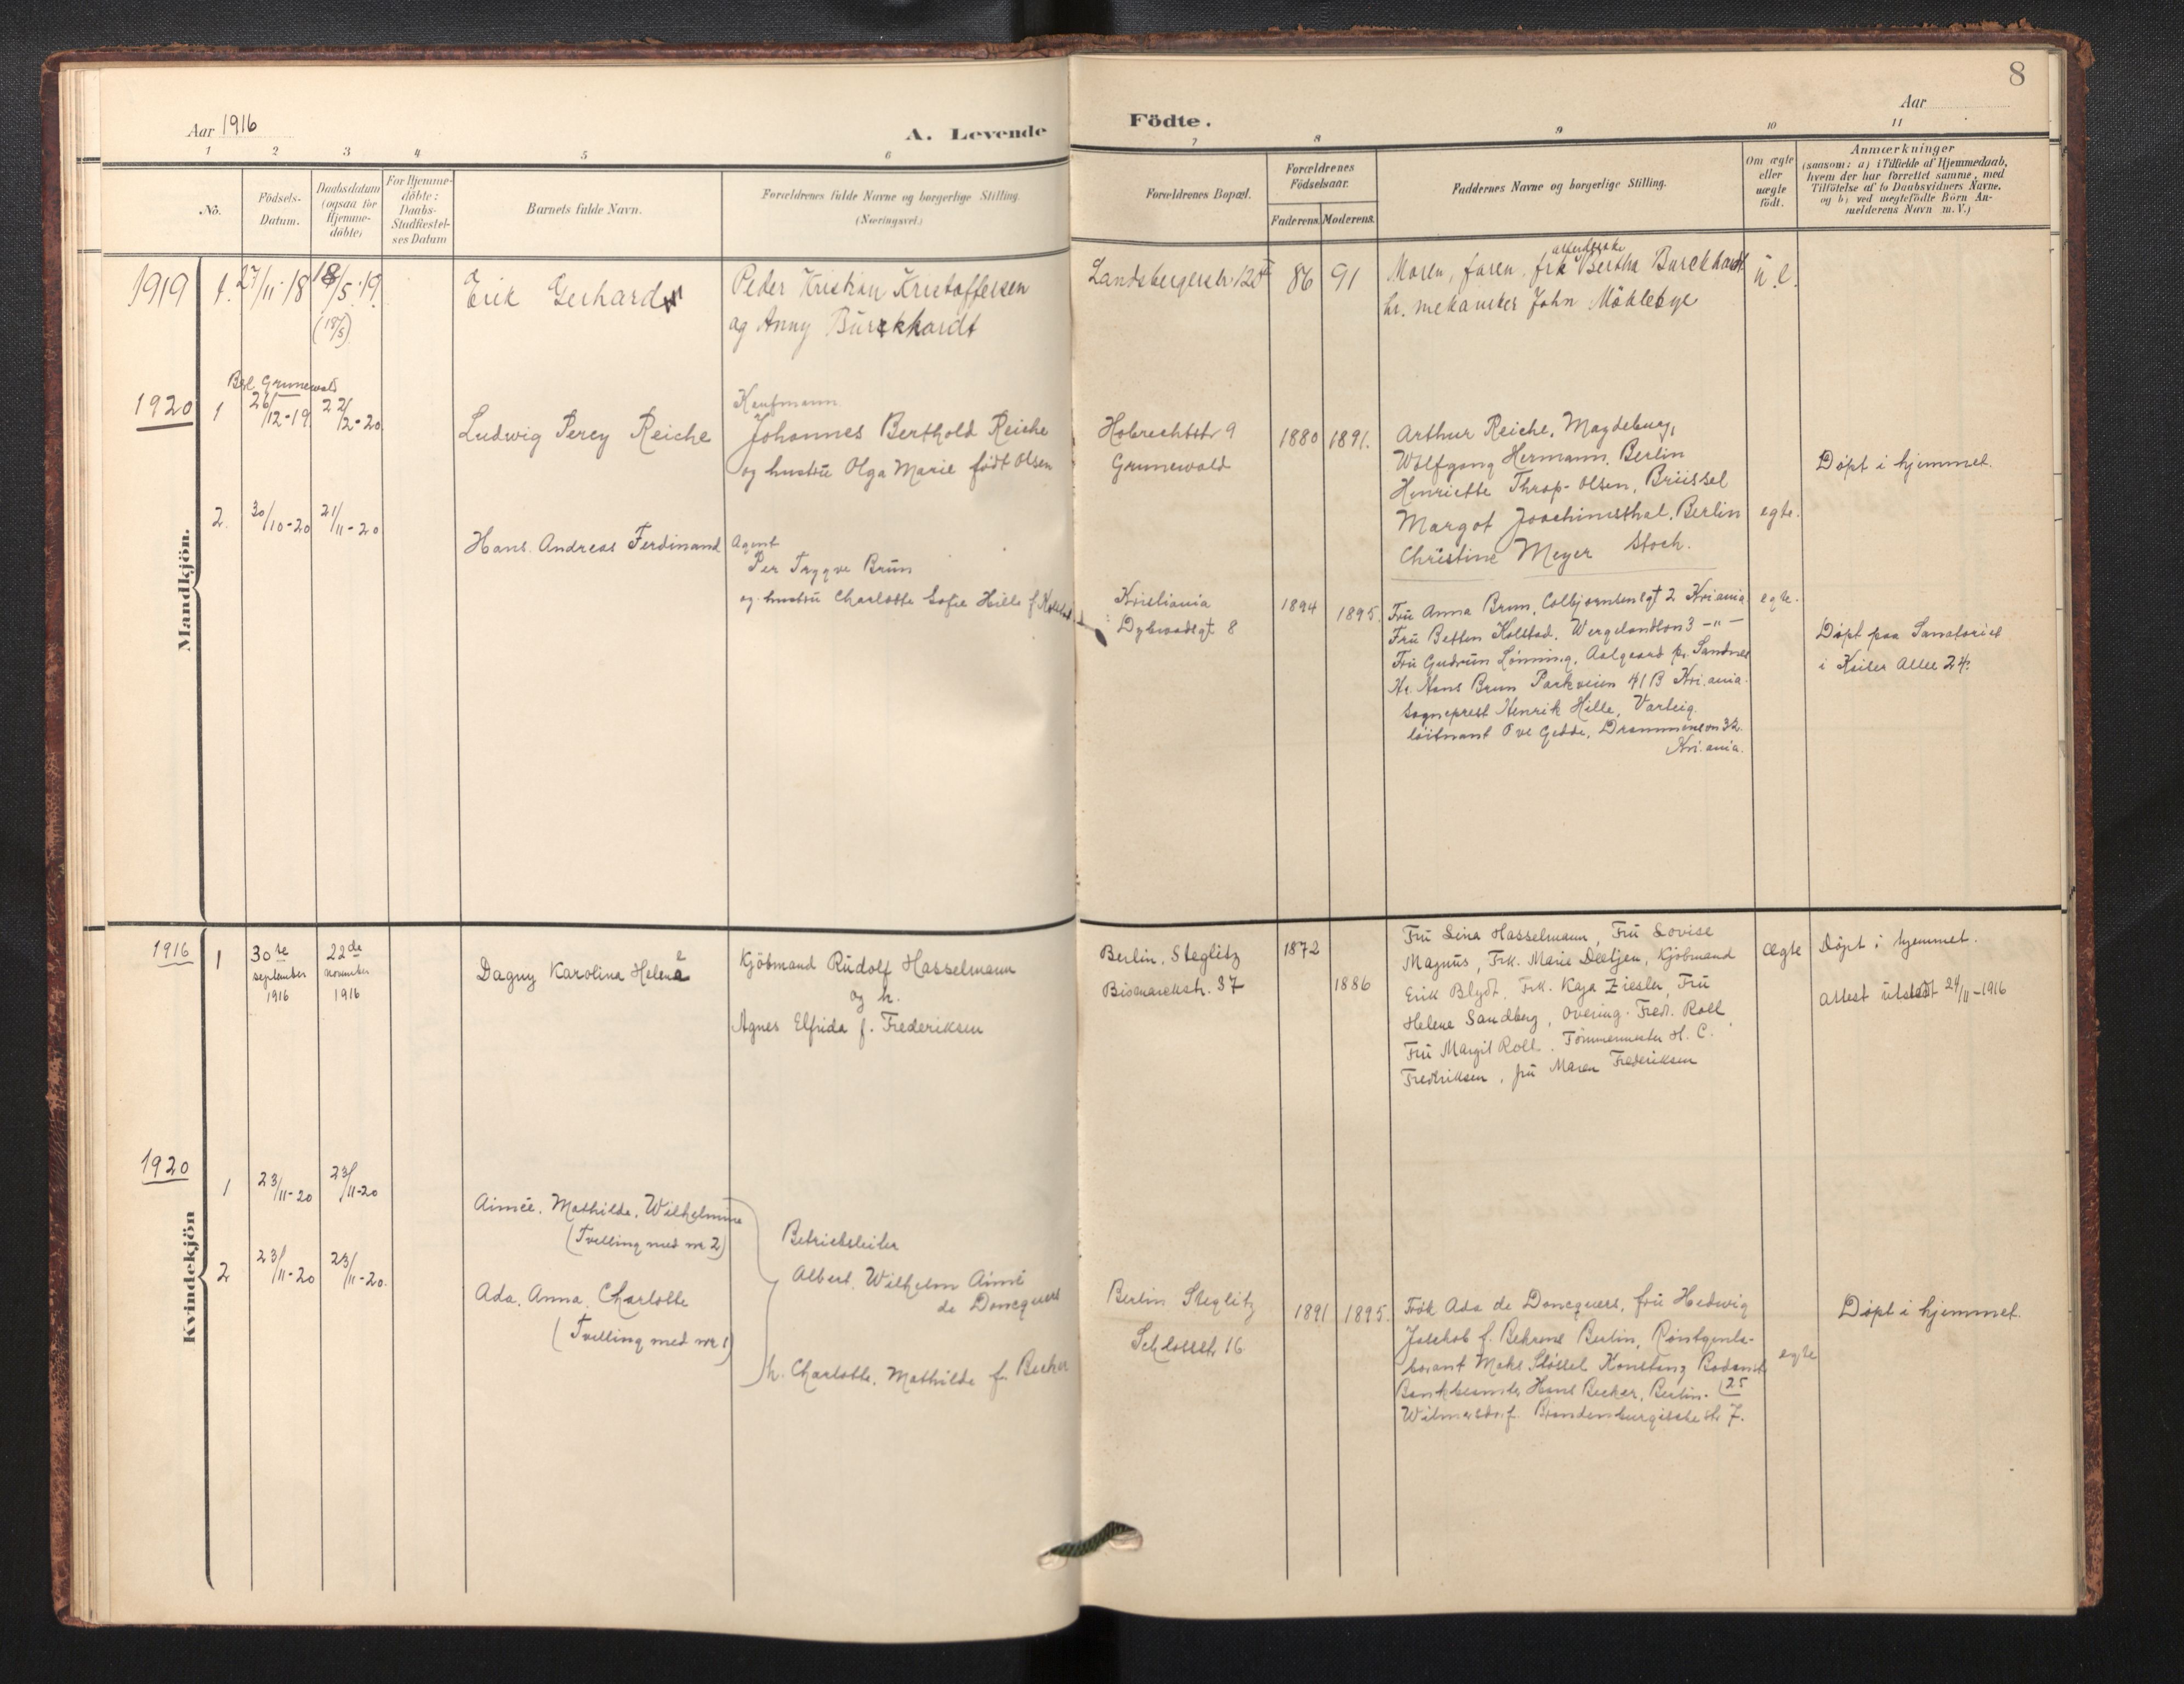 8
Aar 1916
A. Levende
Födte.
Aar
1 2 3 4 5 6 7 8 9 10 11
No.
Födsels-
Datum.
Daabsdatum
(ogsaa for
Hjemme-
döbte)
For Hjemme-
döbte:
Daabs-
Stadfestel-
ses Datum
Barnets fulde Navn.
Foræeldrenes fulde Navne og borgerlige Stilling.
(Næringsvei.)
Forældrenes Bopæl.
Forældrenes
Födselsaar.
Faderens. Moderens.
Faddernes Navne og borgerlige Stilling.
Om ægte
eller
uægte
födt.
Anmærkninger
(saasom: a) i Tilfælde af Hjemmedaab,
hvem der har forrettet samme, med
Tilföielse af to Daabsvidners Navne,
og b) ved uægtefödte Börn An-
melderens Navn m.V.)
Mandkjön.
1919 1. 27/11.18 18/5.19.
(18/5)
Erik Gerhard
Peder Kristian Kristoffersen
og Anny Burckhardt
Landsbergerstr. 120
86 91
Moren, faren, frk Bertha Burckhardt
hr. mekaniker John Möklebye
u.e.
Brl. Grunewald
1920 1 26/12-19. 22/2-20
Ludwig Percy Reiche
Kaufmann
Johannes Berthold Reiche
og hustru Olga Marie født Olsen
Hobrechtstr 9
Grunewald
1880 1891.
Arthur Reiche, Magdeburg,
Wolfgang Hermann, Berlin
Henriette Throp-Olsen, Brüssel
Margot Joachimsthal, Berlin
Christine Meyer Stoch.
egte.
Døpt i hjemmet.
2. 30/10-20 21/11-20
Hans Andreas Ferdinand
Agent
Per Trygve Brun
og hustru Charlotte Sofie Hille f. Kolstad
Kristiania
Dybwadsgt 8
1894 1895.
Fru Anna Brun, Colbjørnsensgt 2 Kr.ania
Fru Betten Kolstad, Wergelandsvn 3 -"-
Fru Gudrun Lønning, Aalgaard pr. Sandnes
Hr. Hans Brun Parkveien 41B Kri.ania.
Sogneprest Henrik Hille, Varteig.
løitnant Ove Gedde, Drammensvn 32.
Kri.ania.
egte.
Døpt paa Sanatoriet
i Kaiser Allee 24.
Kvindekjön
1916 1 30te
september
1916
22de
november
1916
Dagny Karolina Helene
Kjöbmand Rudolf Hasselmann
og h.
Agnes Elfrida f. Frederiksen
Berlin, Steglitz
Bismarckstr. 37
1872
1886
Fru Lina Hasselmann, Fru Lovise
Magnus, Frk. Marie Deetjen, Kjöbmand
Erik Blydt, Frk. Kaja Ziesler, Fru
Helene Sandberg, Overing. Fredr. Roll
Fru Margit Roll. Tömmermester H. C.
Fredriksen, fru Maren Frederiksen
Ægte
Døpt i hjemmet.
Attest utstedt 24/11-1916
1920
1 23/11-20 23/11-20
Aimée, Mathilde, Wilhelmine
(Tvilling med nr 2)
2 23/11-20 23/11-20.
Ada, Anna, Charlotte
(Tvilling med nr 1)
Betriebsleiter
Albert Wilhelm Aimé
de Doncquers
h. Charlotte, Mathilde f. Becker
Berlin Steglitz
Schlosstr 16
1891 1895.
Frök Ada de Doncquers, fru Hedwig
f. Behrens Berlin, Röntgenla-
borant Maks Stössel Konstanz Bodensee
Bankbeamter Hans Becker, Berlin. (25
Wilmersdorf. Brandenburgische str 7.
egte
Døpt i hjemmet.